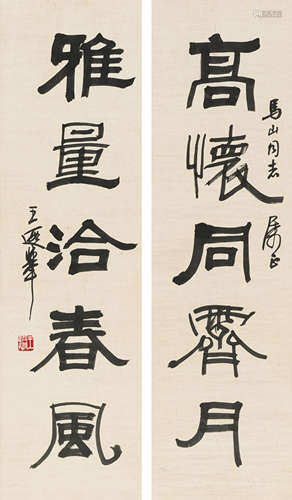 高懷同霽月
馬山同志 属正
雅量洽春風
王遐舉